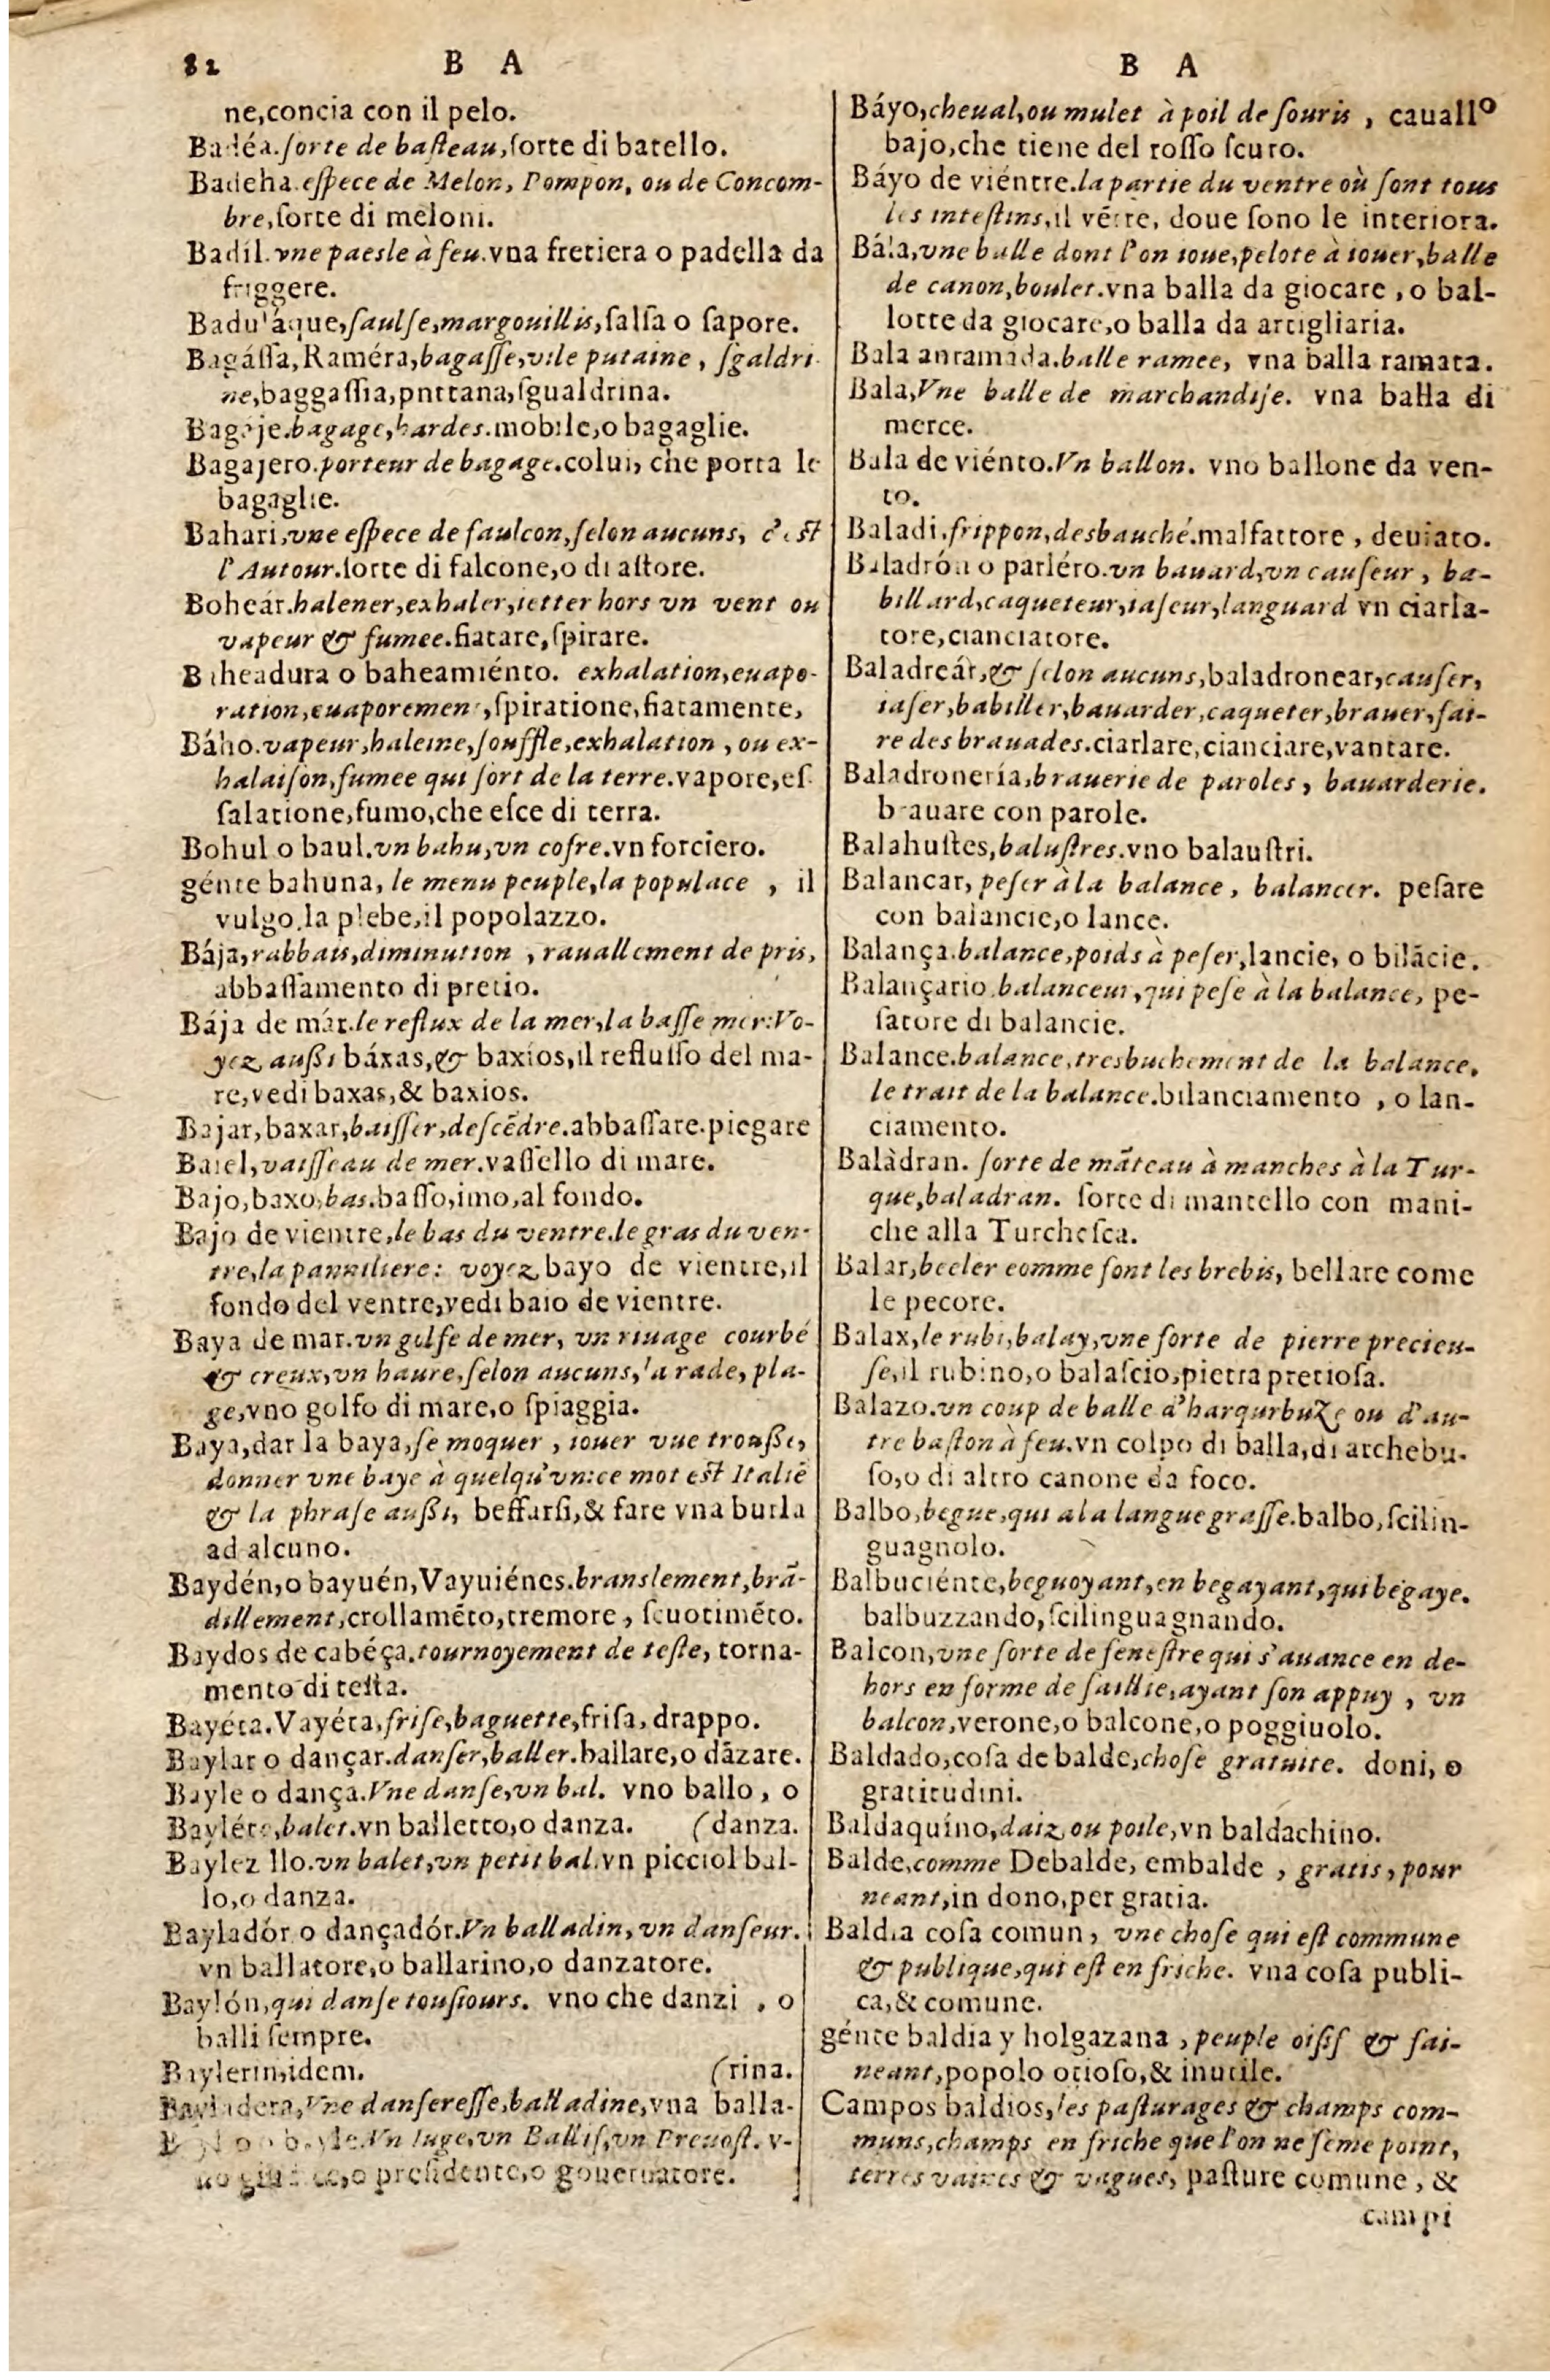 82 B A
ne,concia con il pelo.
Badéa.ſorte de baſteau,ſorte di batello.
Badeha.eſpece de Melon, Pompon, ou de Concom-
bre,ſorte di meloni.
Badíl.vne paesle à feu.vna fretiera o padella da
friggere.
Baduláque,ſaulſe,margouillis,ſalſa o ſapore.
Bagáſſa,Raméra,bagaſſe,vile putaine, ſgaldri-
ne,baggaſſia,pnttana,ſgualdrina.
Bagáje.bagage,hardes.mobile,o bagaglie.
Bagajero.porteur de bagage.colui, che porta le
bagaglie.
Bahari,vne eſpece de faulcon,ſelon aucuns, c'eſt
l'Autour.ſorte di falcone,o di aſtore.
Boheár.halener,exhaler,ietter hors vn vent ou
vapeur & fumee.fiatare,ſpirare.
Baheadura o baheamiénto. exhalation,euapo-
ration,euaporement,ſpiratione,fiatamente,
Báho.vapeur,haleine,ſouffle,exhalation, ou ex-
halaiſon,fumee qui ſort de la terre.vapore,eſ-
ſalatione,fumo,che eſce di terra.
Bohul o baul.vn bahu,vn cofre.vn forciero.
génte bahuna, le menu peuple,la populace, il
vulgo,la plebe,il popolazzo.
Bája,rabbais,diminution, rauallement de pris,
abbaſſamento di pretio.
Bája de már.le reflux de la mer,la baſſe mer:Vo-
yez außi báxas,& baxíos,il refluſſo del ma-
re,vedi baxas,& baxios.
Bajar,baxar,baiſſer,deſcẽdre.abbaſſare.piegare
Baiel,vaiſſeau de mer.vaſſello di mare.
Bajo,baxo,bas.baſſo,imo,al fondo.
Bajo de vientre,le bas du ventre.le gras du ven-
tre,la panniliere: voyez bayo de vientre,il
fondo del ventre,vedi baio de vientre.
Baya de mar.vn golfe de mer, vn riuage courbé
& creux,vn haure,ſelon aucuns,la rade, pla-
ge,vno golfo di mare,o ſpiaggia.
Baya,dar la baya,ſe moquer, iouer vue trouße,
donner vne baye à quelqu'vn:ce mot eſt Italiẽ
& la phraſe außi, beffarſi,& fare vna burla
ad alcuno.
Baydén,o bayuén,Vayuiénes.branslement,brã-
dillement,crollamẽto,tremore, ſcuotimẽto.
Baydos de cabéça.tournoyement de teſte, torna-
mento di teſta.
Bayéta.Vayéta,friſe,baguette,friſa, drappo.
Baylar o dançar.danſer,baller.ballare,o dãzare.
Bayle o dança.Vne danſe,vn bal. vno ballo, o
Bayléte,balet.vn balletto,o danza. (danza.
Baylez llo.vn balet,vn petit bal.vn picciol bal-
lo,o danza.
Bayladór o dançadór.Vn balladin, vn danſeur.
vn ballatore,o ballarino,o danzatore.
Baylón,qui danſe touſiours. vno che danzi, o
balli ſempre.
Baylerin,idem. (rina.
Bayladera,Vne danſereſſe,balladine,vna balla-
Vn Iuge,vn Ballif,vn Preuoſt. v-
no giudice,o preſidente,o gouernatore.
B A
Báyo,cheual,ou mulet à poil de ſouris, cauallo
bajo,che tiene del roſſo ſcuro.
Báyo de viéntre.la partie du ventre où ſont tous
les inteſtins,il vẽtre, doue ſono le interiora.
Bála,vne balle dont l'on ioue,pelote à iouer,balle
de canon,boulet.vna balla da giocare, o bal-
lotte da giocare,o balla da artigliaria.
Bala anramada.balle ramee, vna balla ramata.
Bala,Vne balle de marchandiſe. vna balla di
merce.
Bala de viénto.Vn ballon. vno ballone da ven-
to.
Baladi.frippon,desbauché.malfattore, deuiato.
Baladrón o parléro.vn bauard,vn cauſeur, ba-
billard,caqueteur,iaſeur,languard vn ciarla-
tore,cianciatore.
Baladreár,& ſelon aucuns,baladronear,cauſer,
iaſer,babiller,bauarder,caqueter,brauer,fai-
re des brauades.ciarlare,cianciare,vantare.
Baladronería,brauerie de paroles, bauarderie.
brauare con parole.
Balahuſtes,baluſtres.vno balauſtri.
Balancar, peſer à la balance, balancer. peſare
con balancie,o lance.
Balança.balance,poids à peſer,lancie, o bilãcie.
Balançario.balanceur,qui peſe à la balance, pe-
ſatore di balancie.
Balance.balance,tresbuchement de la balance,
le trait de la balance.bilanciamento, o lan-
ciamento.
Balàdran. ſorte de mãteau à manches à la Tur-
que,baladran. ſorte di mantello con mani-
che alla Turcheſca.
Balar,beeler eomme ſont les brebis, bellare come
le pecore.
Balax,le rubi,balay,vne ſorte de pierre precieu-
ſe,il rubino,o balaſcio,pietra pretioſa.
Balazo.vn coup de balle d'harqurbuze ou d'au-
tre baſton à feu.vn colpo di balla,di archebu-
ſo,o di altro canone da foco.
Balbo,begue,qui a la langue graſſe.balbo,ſcilin-
guagnolo.
Balbuciénte,beguoyant,en begayant,qui bégaye.
balbuzzando,ſcilinguagnando.
Balcon,vne ſorte de feneſtre qui s'auance en de-
hors en forme de ſaillie,ayant ſon appuy, vn
balcon,verone,o balcone,o poggiuolo.
Baldado,coſa de balde,choſe gratuite. doni, o
gratitudini.
Baldaquíno,daiz ou poile,vn baldachino.
Balde,comme Debalde, embalde, gratis, pour
neant,in dono,per gratia.
Baldia coſa comun, vne choſe qui eſt commune
& publique,qui eſt en friche. vna coſa publi-
ca,& comune.
génte baldia y holgazana, peuple oiſif & fai-
neant,popolo otioſo,& inutile.
Campos baldios,les paſturages & champs com-
muns,champs en friche que l'on ne ſeme point,
terres vaines & vagues, paſture comune, &
campi